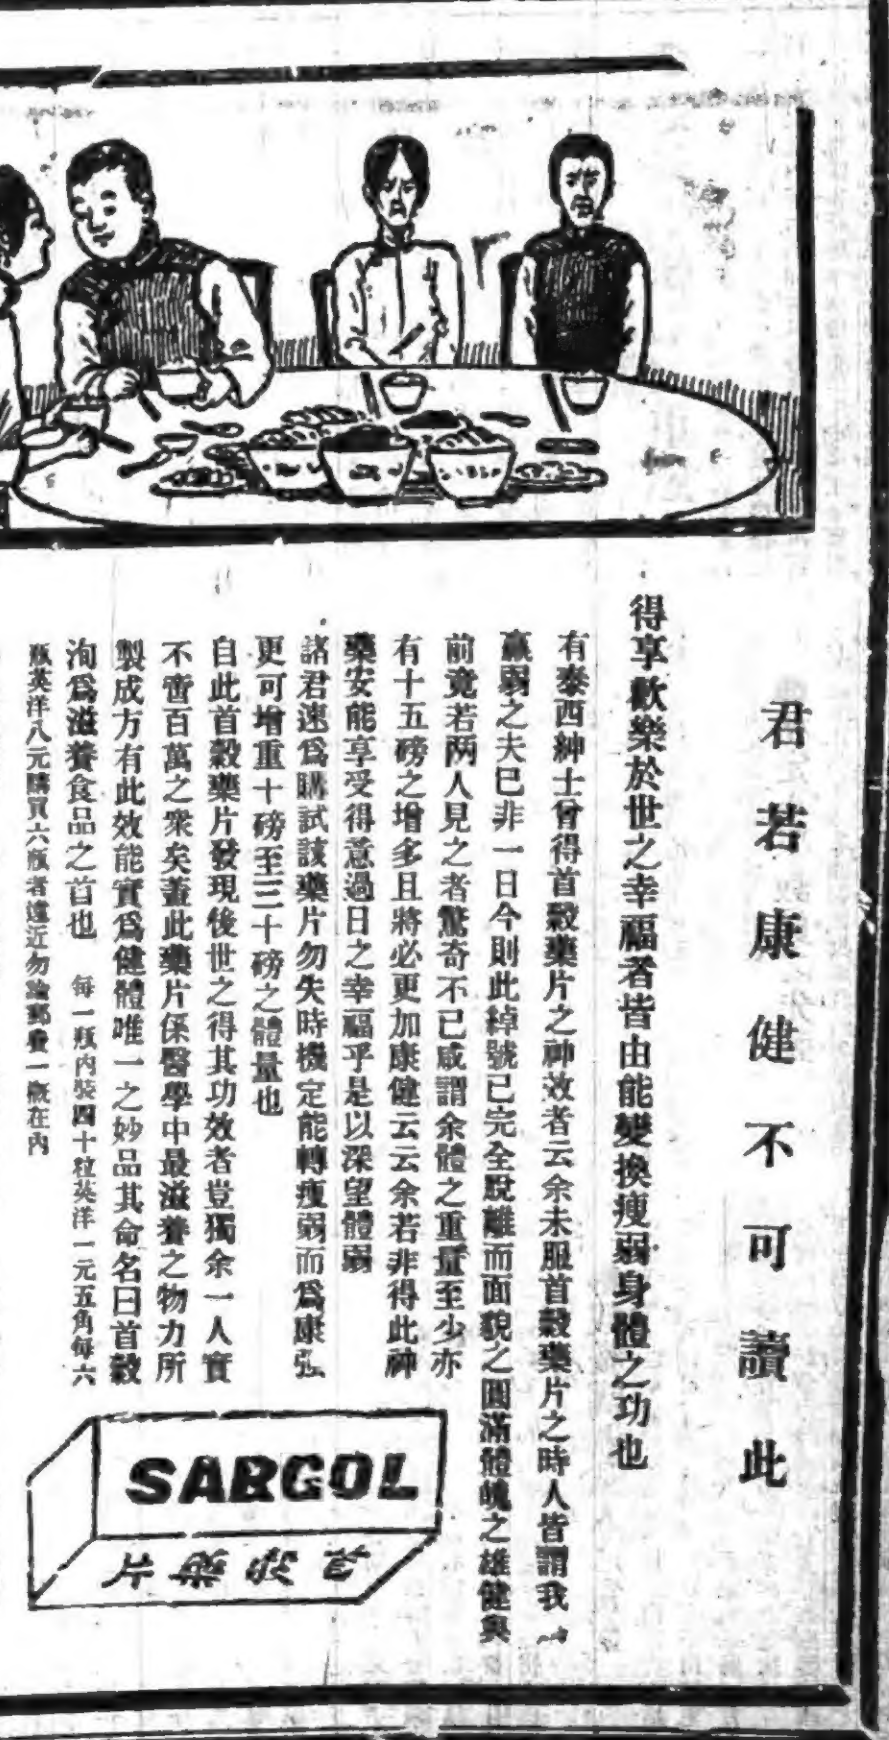 君若康健不可讀此
得享歡樂於世之幸福者皆由能變換瘦弱身體之功也
有泰西紳士曾得首穀藥片之神效者云余未服首穀藥片之時人皆謂我
羸弱之夫已非一日今則此綽號已完全脫離而面貌之圓滿體魄之雄健與
前竟若兩人見之者驚奇不已咸謂余體之重量至少亦
有十五磅之增多且將必更加康健云云余若非得此神
藥安能享受得意過日之幸福乎是以深望體弱
諸君速爲購試該藥片勿失時機定能轉瘦弱而爲康强
更可增重十磅至三十磅之體量也
自此首穀藥片發現後世之得其功效者豈獨余一人實
不啻百萬之衆矣蓋此藥片係醫學中最滋養之物力所
製成方有此效能實爲健體唯一之妙品其命名曰首穀
洵爲滋養食品之首也 每一瓶內裝四十粒英洋一元五角每六
瓶英洋八元購買六瓶者遠近勿論郵費一概在內
SARGOL
片藥穀首